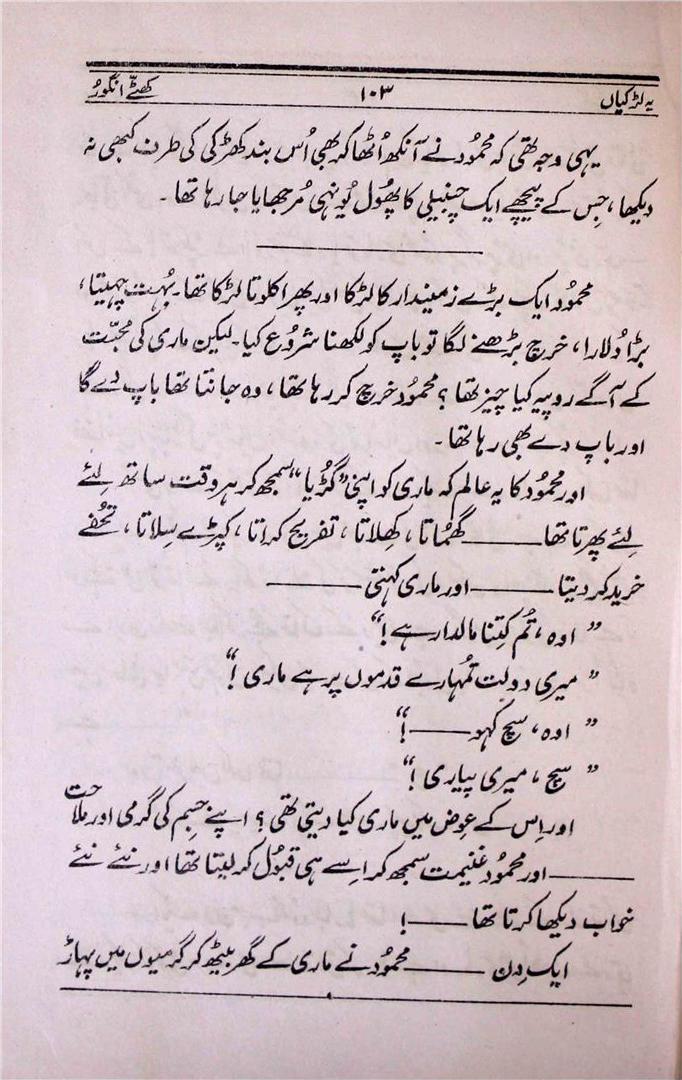 یہ لڑکیاں ۱۰۳ کھٹّے انگور
یہی وجہ تھی کہ محمُود نے آنکھ اُٹھا کر بھی اُس بند کھڑکی کی طرف کبھی نہ
دیکھا، جِس کے پیچھے ایک چنبیلی کا پھُول یُونہی مُرجھایا جا رہا تھا۔
محمُود ایک بڑے زمیندار کا لڑکا اور پھر اکلوتا لڑکا تھا۔ بہُت چہیتا،
بڑا دُلارا، خرچ بڑھنے لگا تو باپ کو لکھنا شرُوع کیا۔ لیکن ماری کی مُحبّت
کے آگے روپیہ کیا چیز تھا؟ محمُود خرچ کر رہا تھا، وہ جانتا تھا باپ دے گا
اور باپ دے بھی رہا تھا۔
اور محمُود کا یہ عالم کہ ماری کو اپنی ”گُڑیا“ سمجھ کر ہر وقت ساتھ لِئے
لِئے پھرتا تھا ——— گھُماتا، کھِلاتا، تفریح کراتا، کپڑے سِلاتا، تحُفے
خرید کر دیتا ——— اور ماری کہتی ———
”اوہ، تُم کِتنا مالدار ہے!“
”میری دولت تُمہارے قدموں پر ہے ماری!“
”اوہ، سچ کہو ———!“
”سچ، میری پیاری!“
اور اِس کے عوِض میں ماری کیا دیتی تھی؟ اپنے جِسم کی گرمی اور ملاحت
——— اور محمُود غنیمت سمجھ کر اِسے ہی قبُول کر لیتا تھا اور نئے نئے
خواب دیکھا کرتا تھا ———!
ایک دِن ——— محمُود نے ماری کے گھر بیٹھ کر گرمیوں میں پہاڑ